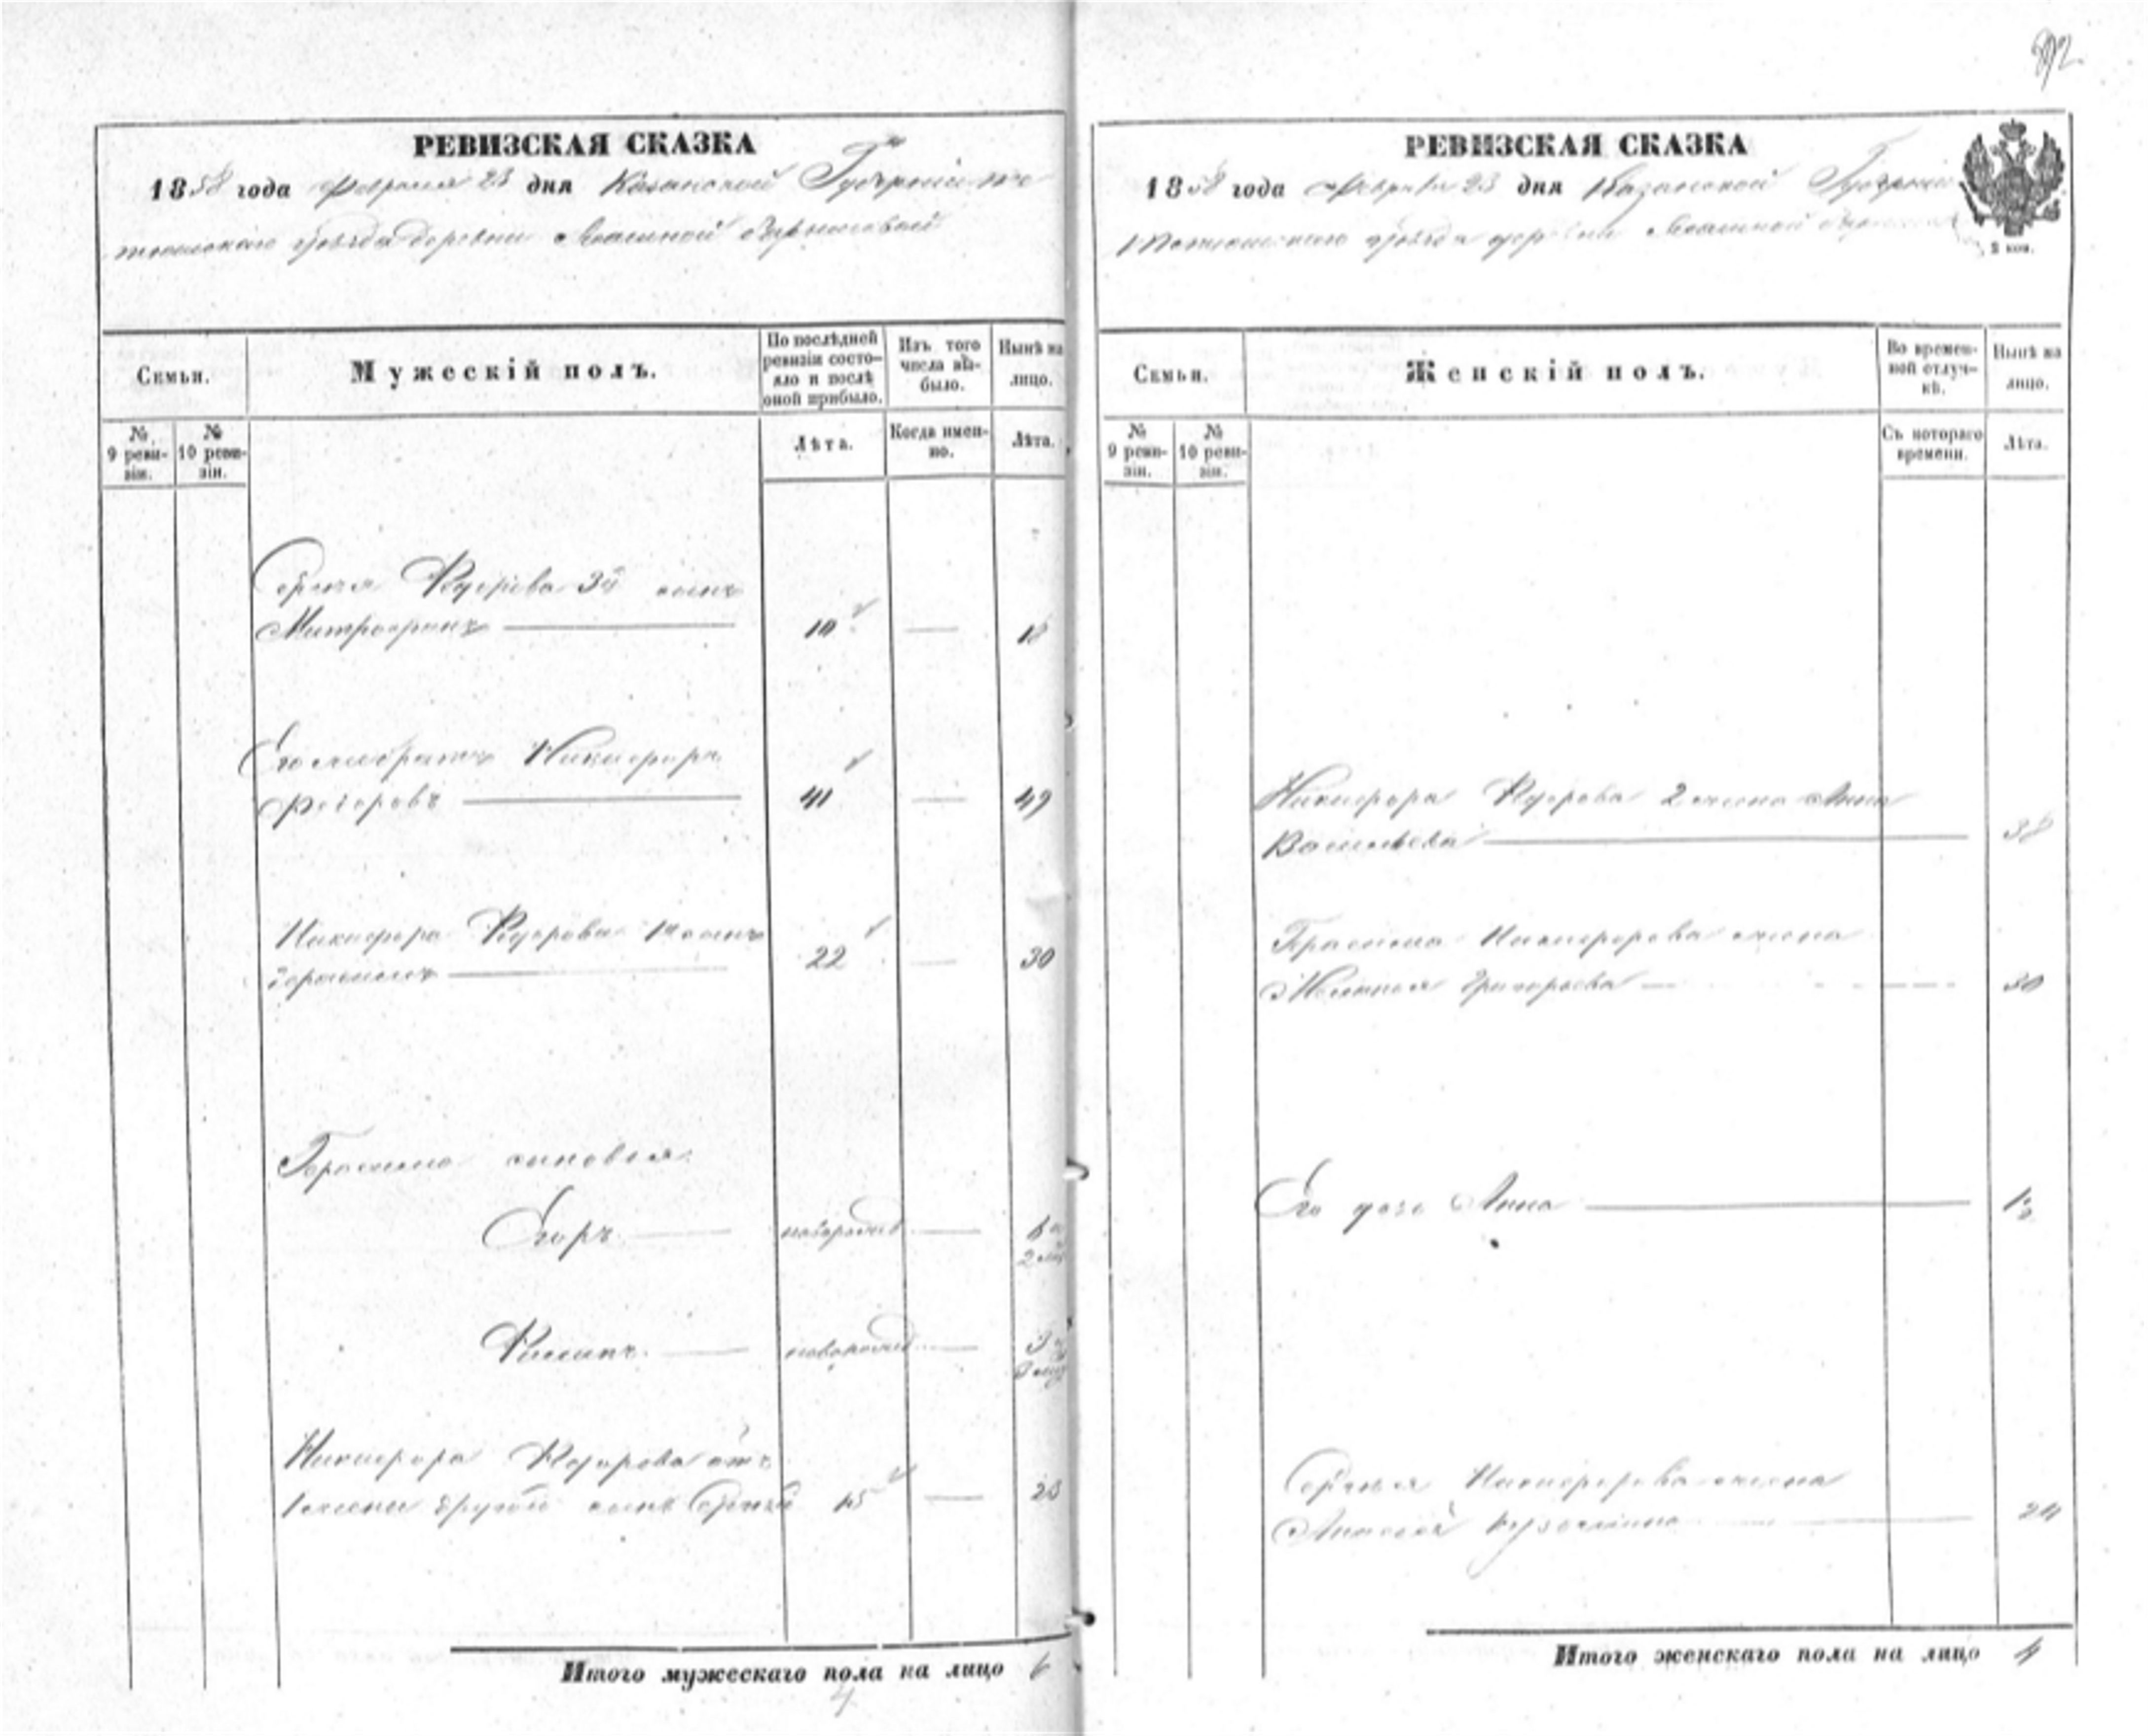 92
РЕВИЗСКАЯ СКАЗКА
1858 года Февраля 23 дня Казанской Губерніи Те
тюшскаго уѣзда деревни
Семьи.
Мужескій полъ.
По послѣдней ревизіи состояло и послѣ оной прибыло.
Изъ того числа выбыло.
Нынѣ на лицо.
№ 9 ревизіи.
№ 10 ревизіи.
Лѣта.
Когда именно.
Лѣта.
Сергѣя Федорова 3й сынъ
Митрофанъ 10 — 18
Никифоръ
Федоровъ 41 — 49
Никифора Федорова 1й сынъ
Герасимъ 22 — 30
Герасима сыновья
Егоръ новорожд —
Филипъ новорожд —
Никифора Федорова отъ
1 жены другой сынъ Сергѣй 15 — 23
Итого мужескаго пола на лицо 6
РЕВИЗСКАЯ СКАЗКА
1858 года Февраля 23 дня Казанской Губерніи
Тетюшскаго уѣзда деревни
2 коп.
Семьи.
Женскій полъ.
Во временной отлучкѣ.
Нынѣ на лицо.
№ 9 ревизіи.
№ 10 ревизіи.
Съ котораго времени.
Лѣта.
Никифора Федорова 2 жена Анна
Васильева 38
Герасима Никифорова жена
Григорьева 30
Его дочь Анна
Сергѣя Никифорова жена
24
Итого женскаго пола на лицо 4